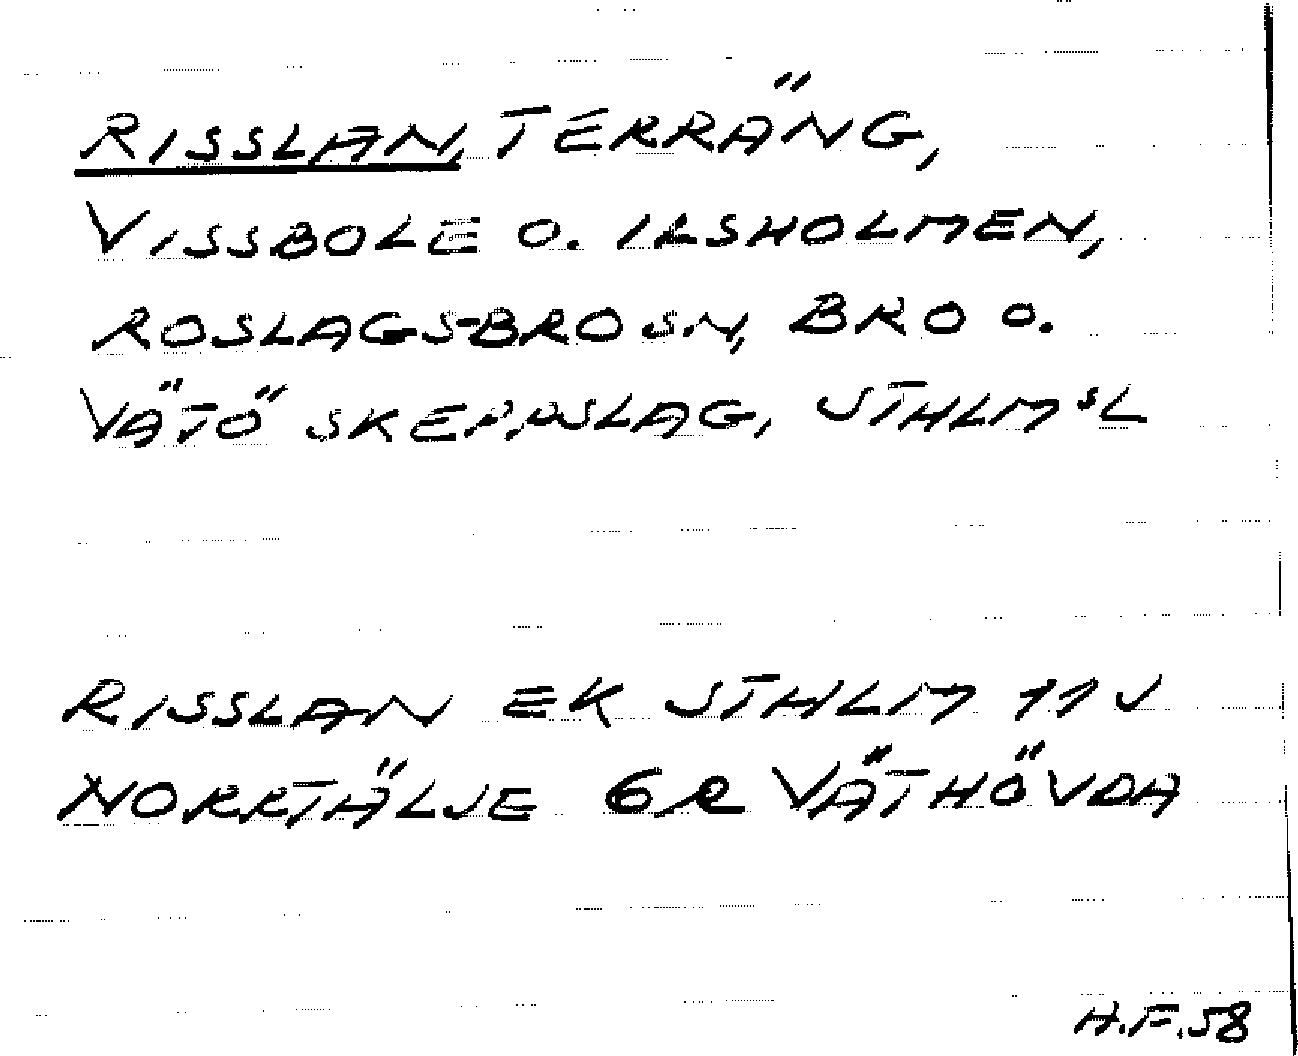 RISSLAN, TERRÄNG,
VISSBOLE O. ILSHOLMEN,
ROSLAGS-BRO SN, BRO O.
VÄTÖ SKEPPSLAG, STHLMSL
RISSLAN EK STHLM 11V
NORRTÄLJE 6R VÄTHÖVDA
H.F.58